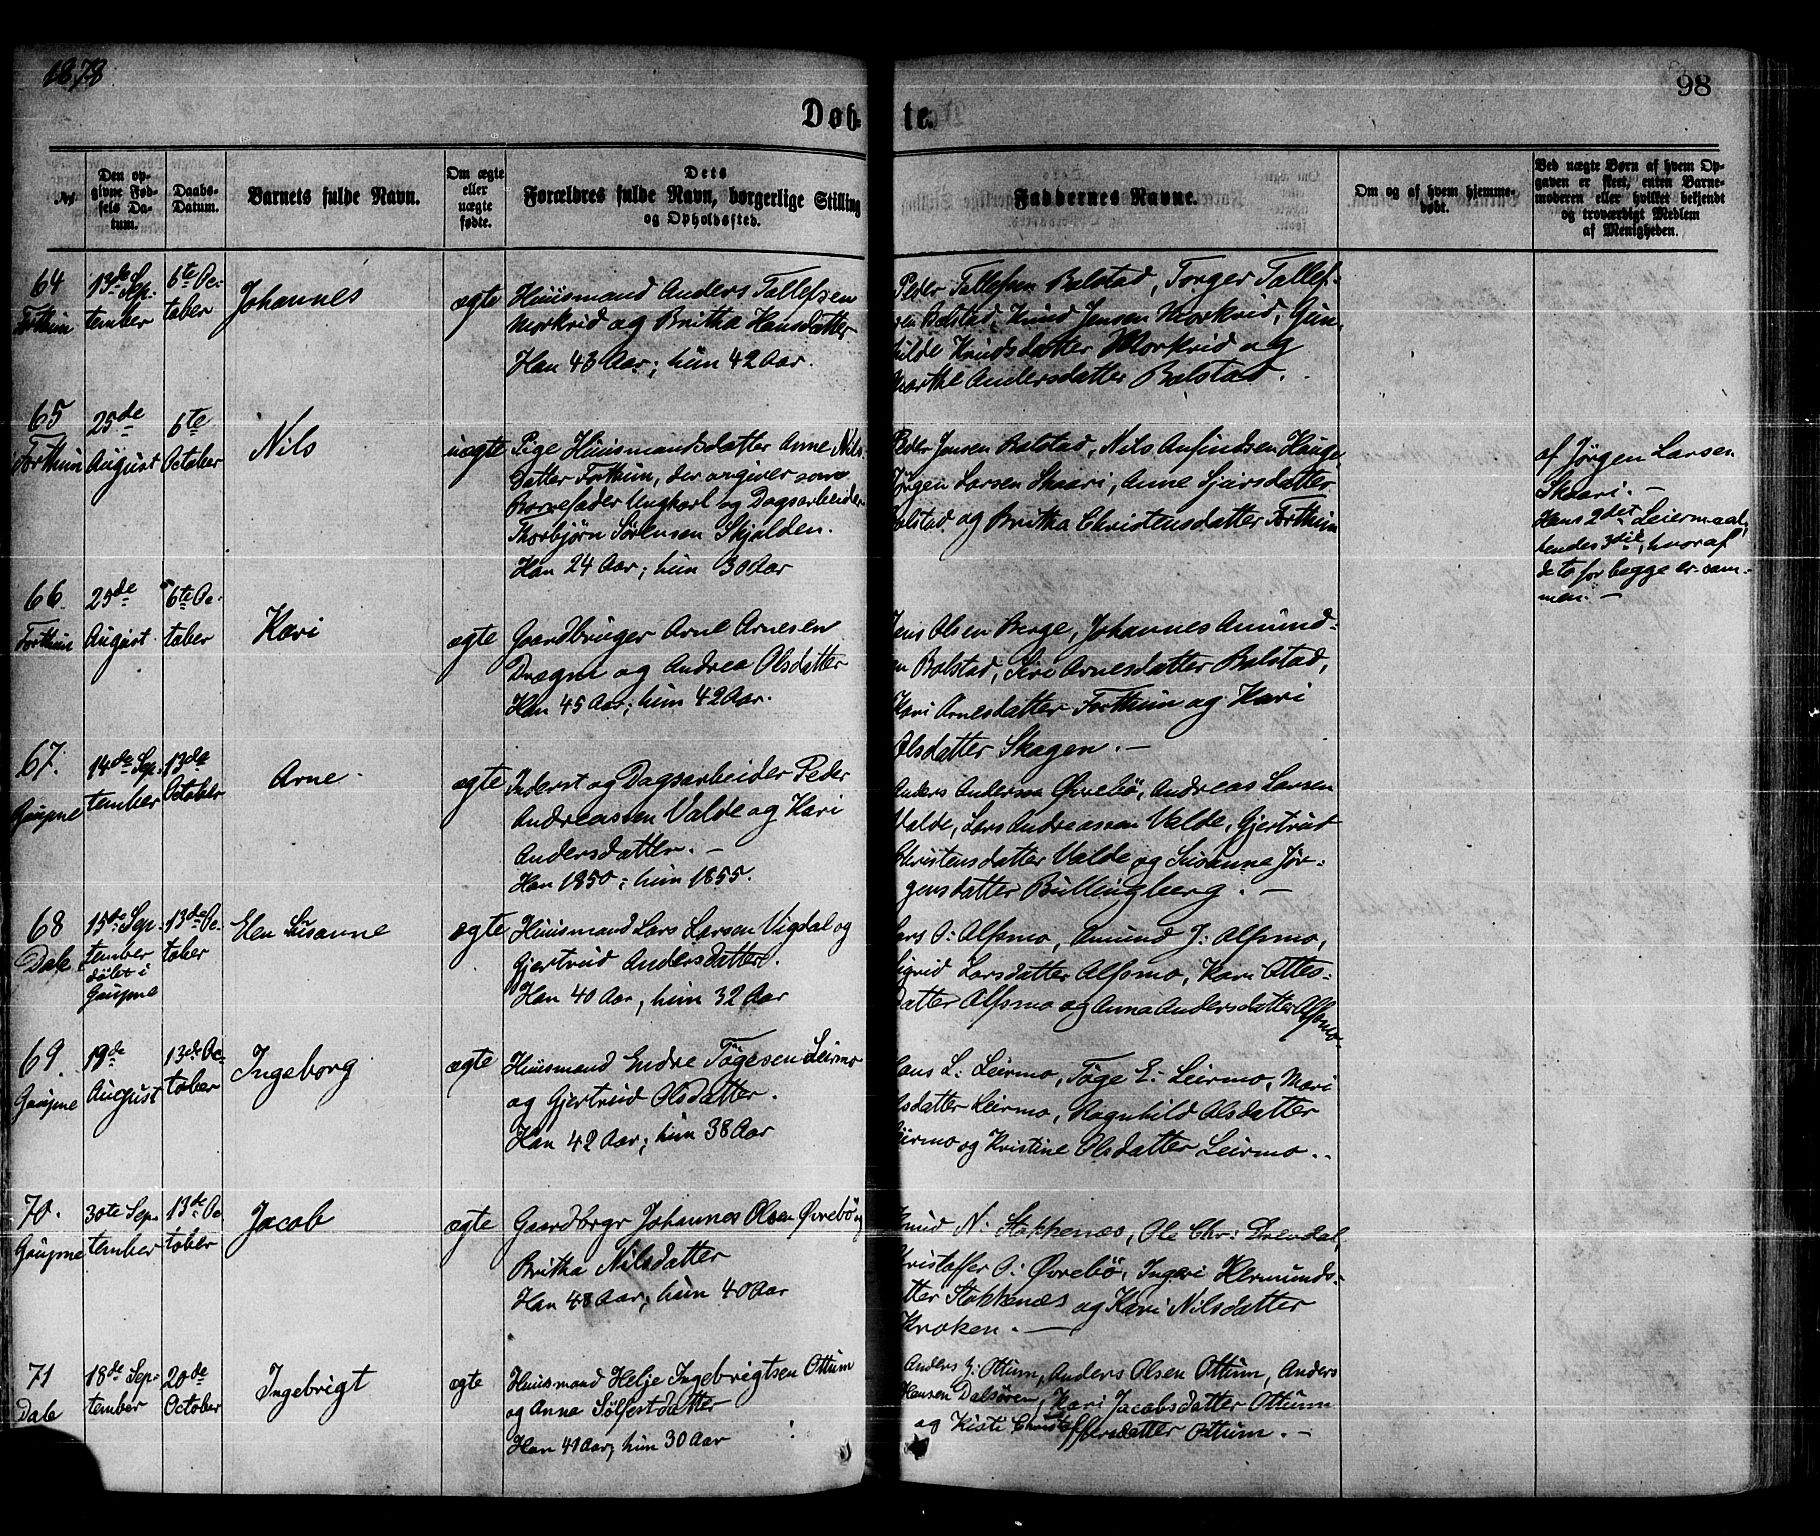 1878
98
Døb-
te.
№
Den op-
givne Fød-
sels Da-
tum.
Daabs-
Datum.
Barnets fulde Navn.
Om ægte
eller
uægte
fødte.
Dets
Forældres fulde Navn, borgerlige Stilling
og Opholdssted.
Faddernes Navne.
Om og af hvem hjemme-
døbt.
Ved uægte Børn af hvem Op-
gaven er skeet, enten Barne-
moderen eller hvilket bekjendt
og troværdigt Medlem
af Menigheden.
64
Forthun
13de Sep-
tember
6te Oc-
tober
Johannes
ægte
Huusmand Anders Tollefsen
Morkrid og Britha Hansdatter
Han 43 Aar; hun 42 Aar.
Peder Tollefsen Bolstad, Torger Tollef-
sen Bolstad, Knud Jensen Morkrid, Gun-
hilde Knudsdatter Morkrid og
Marthe Andersdatter Bolstad.
65
Forthun
25de
August
6te
October
Nils
uægte
Pige Huusmandsdatter Anne Nils-
datter Forthun, der angiver som
Barnefader Ungkarl og Dagsarbeider
Thorbjørn Sørensen Skjolden.
Han 24 Aar; hun 30 Aar
Peder Jensen Bolstad, Nils Anfindsen Hauge,
Jørgen Larsen Skaari, Anne Sjursdatter
Bolstad og Britha Christensdatter Forthun
af Jørgen Larsen
Skaari. —
Hans 2det Leiermaal,
hendes 3die, hvoraf
dette for begge er sam-
men. —
66
Forthun
25de
August
6te Oc-
tober
Kari
ægte
Gaardbruger Arne Arnesen
Drægni og Andrea Olsdatter
Han 45 Aar; hun 42 Aar.
Jens Olsen Berge, Johannes Amund-
sen Bolstad, Siri Arnesdatter Bolstad,
Kari Arnesdatter Forthun og Kari
Olsdatter Skagen. —
67.
Gaupne
14de Sep-
tember
13de
October
Arne
ægte
Inderst og Dagsarbeider Peder
Andreassen Valde og Kari
Andersdatter. —
Han 1850; hun 1855.
Anders Andersen Øvrebö, Andreas Larsen
Valde, Lars Andreassen Valde, Gjertrud
Christensdatter Valde og Susanne Jør-
gensdatter Bullingberg. —
68
Dale
15de Sep-
tember
døbt i
Gaupne
13de Oc-
tober
Elen Susanne
ægte
Huusmand Lars Larsen Vigdal og
Gjertrud Andersdatter.
Han 40 Aar, hun 32 Aar
Lars O: Alsmo, Amund J: Alsmo,
Sigrid Larsdatter Alsmo, Kari Ottes-
datter Alsmo og Anna Andersdatter Alsmo.
69.
Gaupne
19de
August
13de Oc-
tober
Ingeborg
ægte
Huusmand Endre Tögesen Leirmo
og Gjertrud Olsdatter.
Han 42 Aar; hun 38 Aar
Hans L: Leirmo, Töge E: Leirmo, Mari
Olsdatter Leirmo, Ragnhild Olsdatter
Leirmo og Kristine Olsdatter Leirmo..
70.
Gaupne
30te Sep-
tember
13de Oc
tober
Jacob
ægte
Gaardbrgr Johannes Olsen Øvrebö og
Britha Nilsdatter
Han 48 Aar; hun 40 Aar
Knud N: Stokkenæs, Ole Chr: Drendal,
Christaffer O: Øvrebö, Ingeri Hermunds-
datter Stokkenæs og Kari Nilsdatter
Kroken. —
71
Dale
18de Sep-
tember
20de
October
Ingebrigt
ægte
Huusmand Helje Ingebrigtsen Ottum
og Anna Sølfestdatter
Han 41 Aar; hun 30 Aar
Anders J: Ottum, Anders Olsen Ottum, Anders
Hansen Dalsören, Kari Jacobsdatter Ottum
og Kisti Christoffersdatter Ottum. —